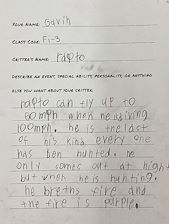 YOUR NAME: Gavin
CLASS CODE: Fi-3
CRITTER'S NAME: rapto
DESCRIBE AN EVENT, SPECIAL ABILITY, PERSONALITY, OR ANYTHING
ELSE YOU WANT ABOUT YOUR CRITTER:
rapto can fly up to
60mph when he adiving
100mph. he is the last
of his kind every one
has ben hunted. he
only comes out at night
but when he is hunting.
he breths fire and
the fire is purple.